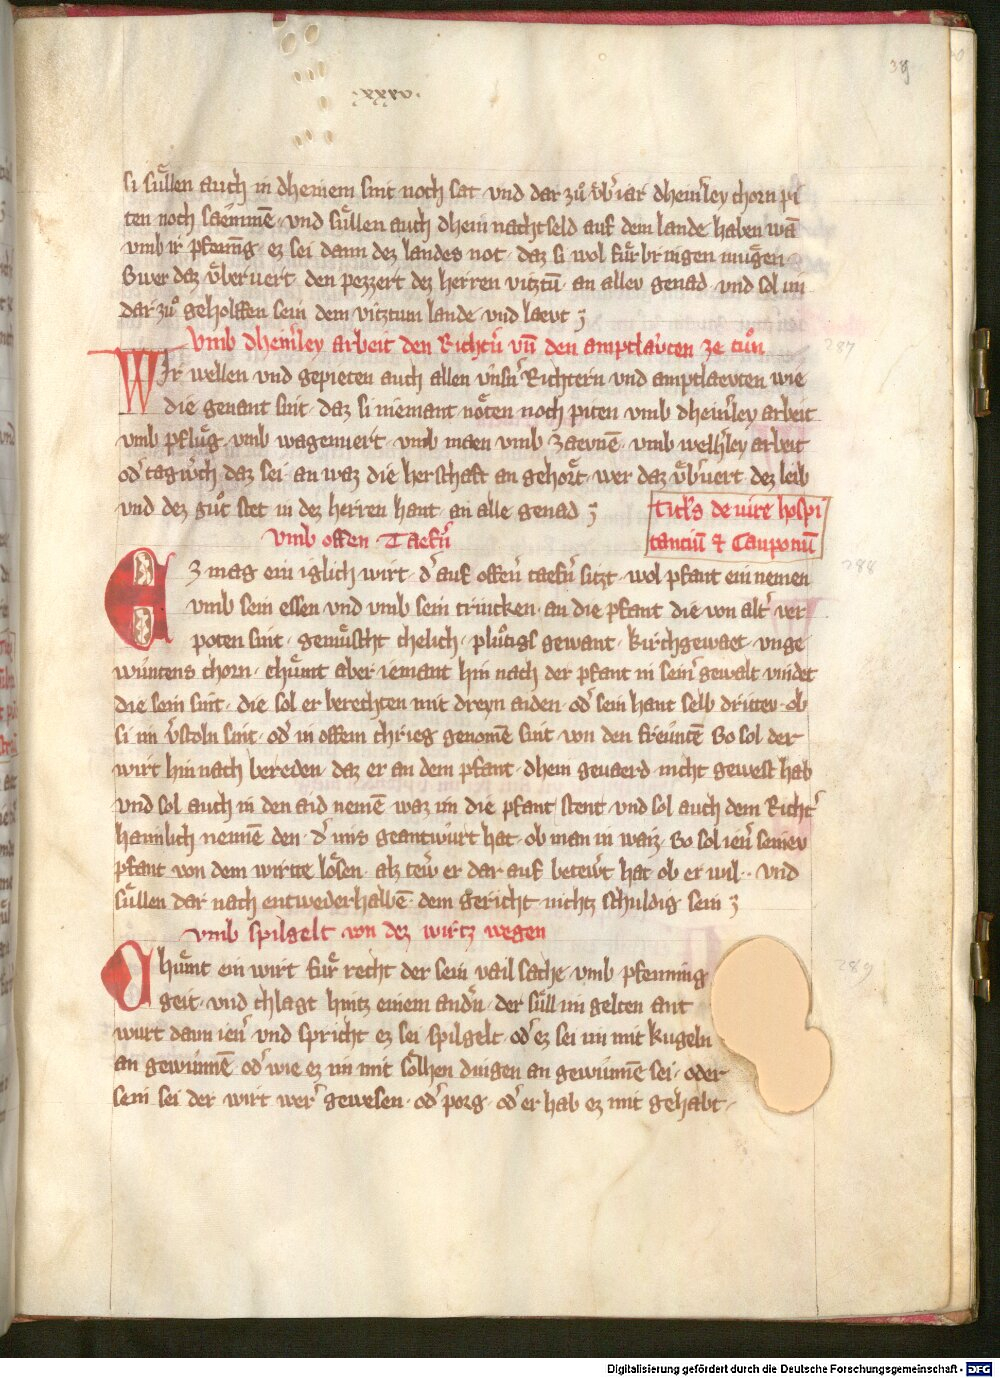 39
·xxxv·
si sűllen auch in dheinem sint noch sat · vnd dar zů v̊b̾iar dheins̾ley chorn pi
ten noch saemmē · vnd sűllen auch dhein nachtseld auf dem lande haben wā
vmb ir pfenīng · ez sei dann dez landes not · daz si wol fűrbringen műgen ·
Swer daz v̊beruert · den pezzert dez herren vitztū · an allev genad · vnd sol im
dar zů geholffen sein dem vitztum lande · vnd laevt ʒ
Vmb dheins̾ley arbeit den Richtn̾ vn̄ den amptlavten ze tůn
287
WIr wellen vnd gepieten auch allen vnsn̾ Richtern vnd amptlaevten wie
die genant sint · daz si niemant nőten noch piten vmb dheins̾ley arbeit
vmb pflűg · vmb wagenuert · vmb maen vmb zaevnē · vmb welh̾ley arbeit
od̾ tagw̾ch daz sei · an waz die herschaft an gehőrt · wer daz v̊b̾uert dez leib
vnd dez gůt stet in dez herren hant · an alle genad ʒ
Titl̾s de iure hospi
tanciū & Cauponiū
Vmb offen Taefn̾
288
EZ mag ein iglich wirt · d̾ auf offen̾ taefn̾ sitzt · wol pfant ein nemen
vmb sein essen vnd vmb sein trincken · an die pfant die von alt̾ ver
poten sint · geműscht chelich · plůtigs gewant · kirchgewaet · vnge
wuntens chorn · chűmt aber iemant hin nach der pfant in sein̾ gewalt vindet
die sein sint · die sol er berechten mit dreyn aiden · od̾ sein hant selb dritter · ob
si im v̾stoln sint · od̾ in offem chrieg genomē sint · von den freuntē So sol der
wirt hin nach bereden · daz er an dem pfant · dhein geuaerd nicht gewest hab
vnd sol auch in den aid nemē waz im die pfant stent · vnd sol auch dem Richt̾
haimlich nennē den · d̾ ims geantwurt hat · ob man in waiz · So sol ien̾ seinev
pfant von dem wirtte lősen · alz tew̾ er dar auf betew̾t hat ob er wil · · vnd
sűllen dar nach entwederhalbē dem gericht nichtz schuldig sein ʒ
Vmb spilgelt von dez wirtz wegen
289
Chűmt ein wirt fűr recht der sein vail sache · vmb pfenning
geit · vnd chlagt hintz einem andn̾ · der sűll im gelten ant
wurt dann ien̾ vnd spricht ez sei spilgelt od̾ ez sei im mit kugeln
an gewunnē od̾ wie ez im mit sőlhen dingen an gewunnē sei · oder
sein sei der wirt wer̾ gewesen · od̾ porg · od̾ er hab ez mit gehabt ·
Digitalisierung gefördert durch die Deutsche Forschungsgemeinschaft - DFG